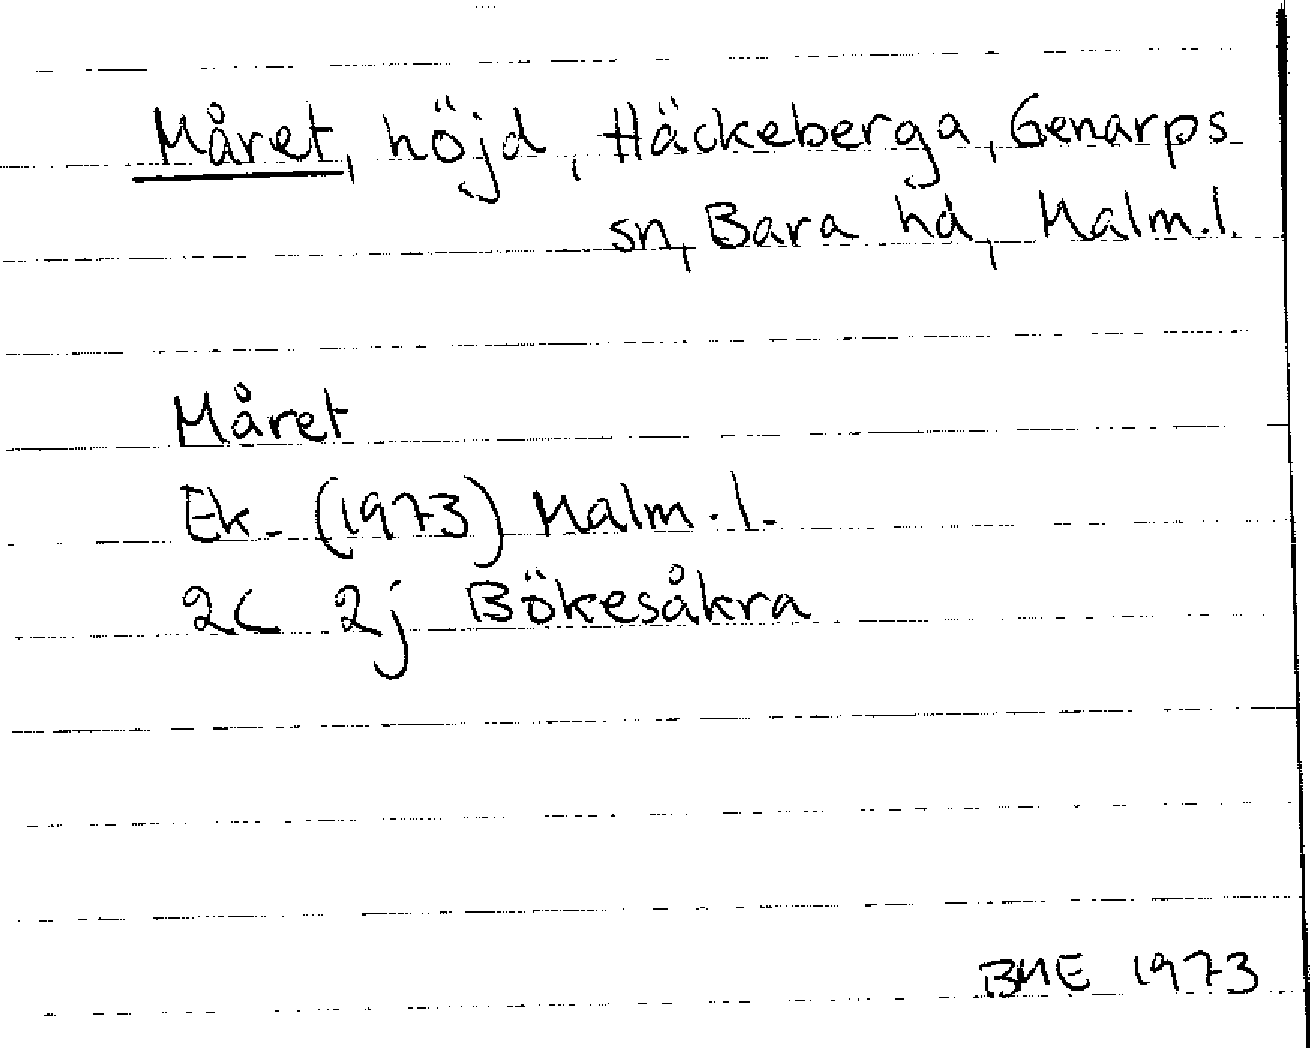 Måret, höjd, Häckeberga, Genarps
sn, Bara hd, Malm.l.
Måret
Ek. (1973) Malm.l.
2C 2j Bökesåkra
BME 1973